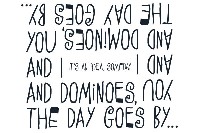 THE DAY GOES BY...
AND DOMINOES, YOU
AND
AND IT'S AN AND
AND DOMINOES, YOU
THE DAY GOES BY...